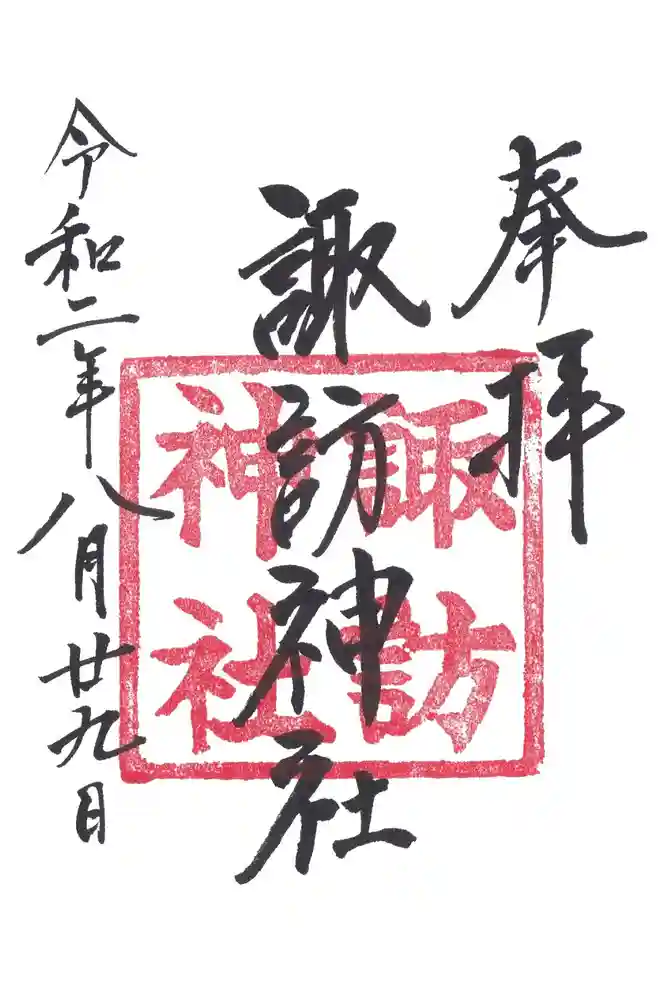 奉拝
諏訪神社
令和二年八月廿九日
諏訪
神社